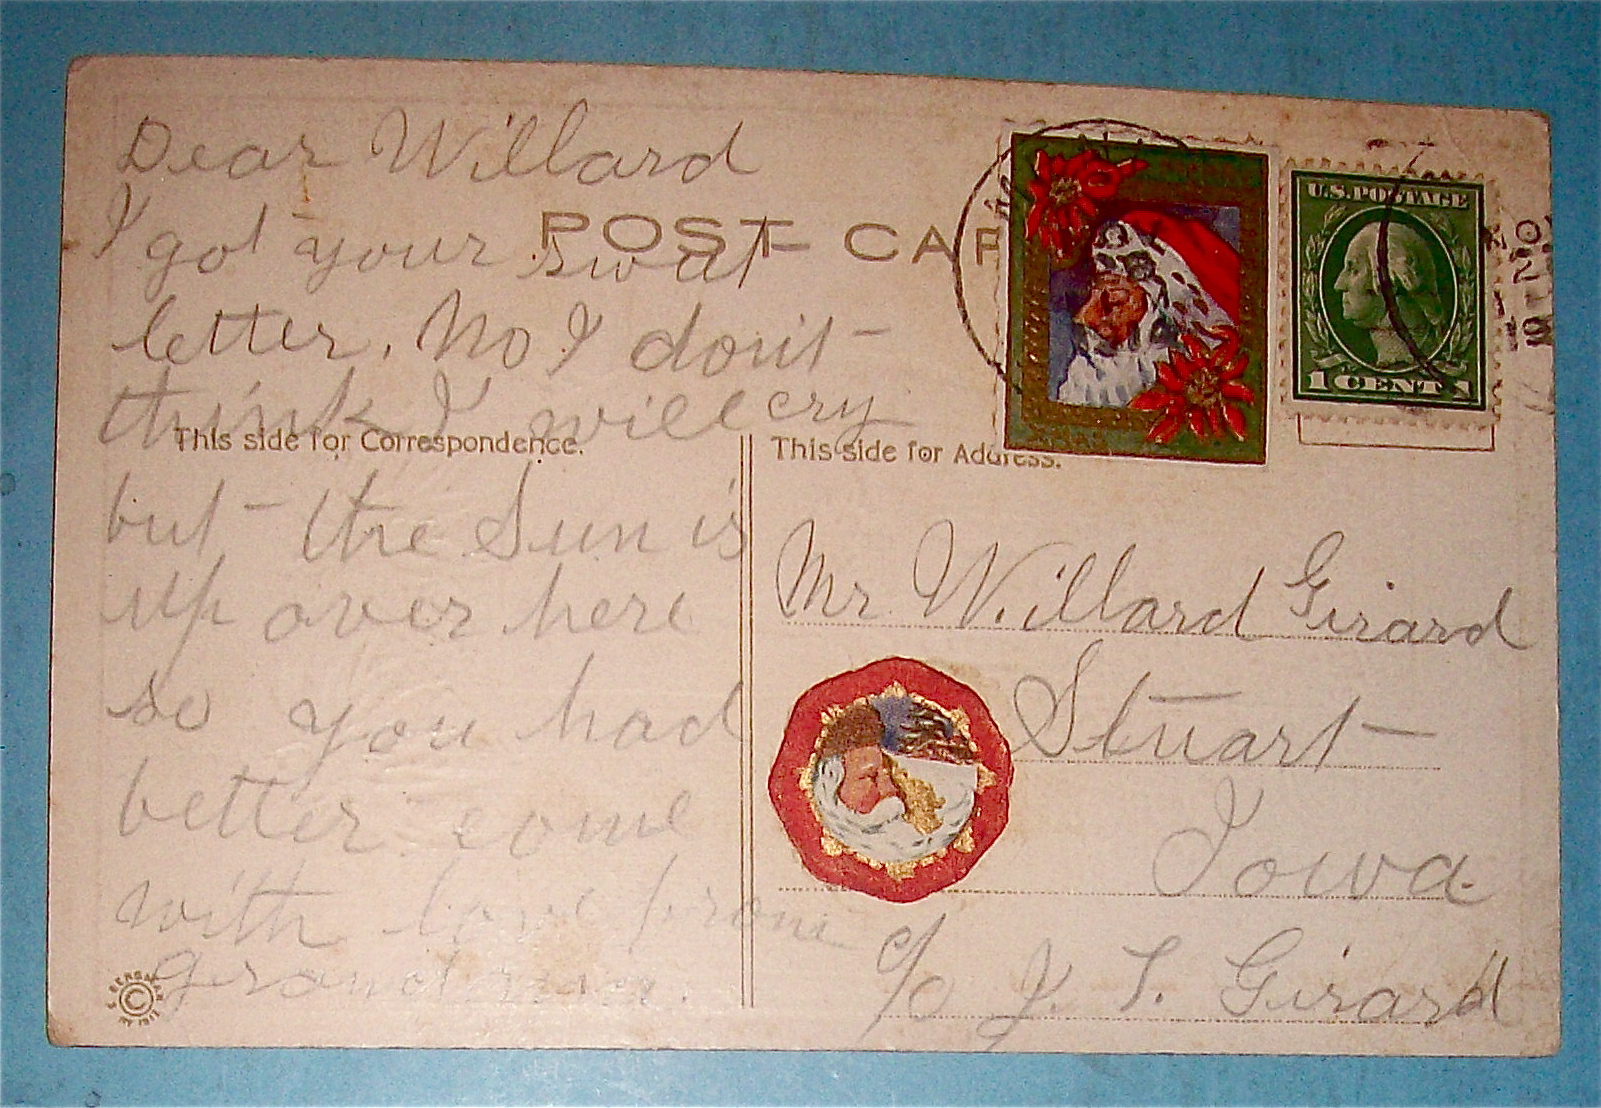 Dear Willard
I got your swat
letter. No I don't
think I will cry
but the Sun is
up over here
so you had
better come
with love from
Grandma.
POST CAR
This side for Correspondence.
This side for Address.
U.S. POSTAGE
1 CENT 1
Mr Willard Girard
Stuart
Iowa.
c/o J. T. Girard
S. BERGMAN
©
NY 1913